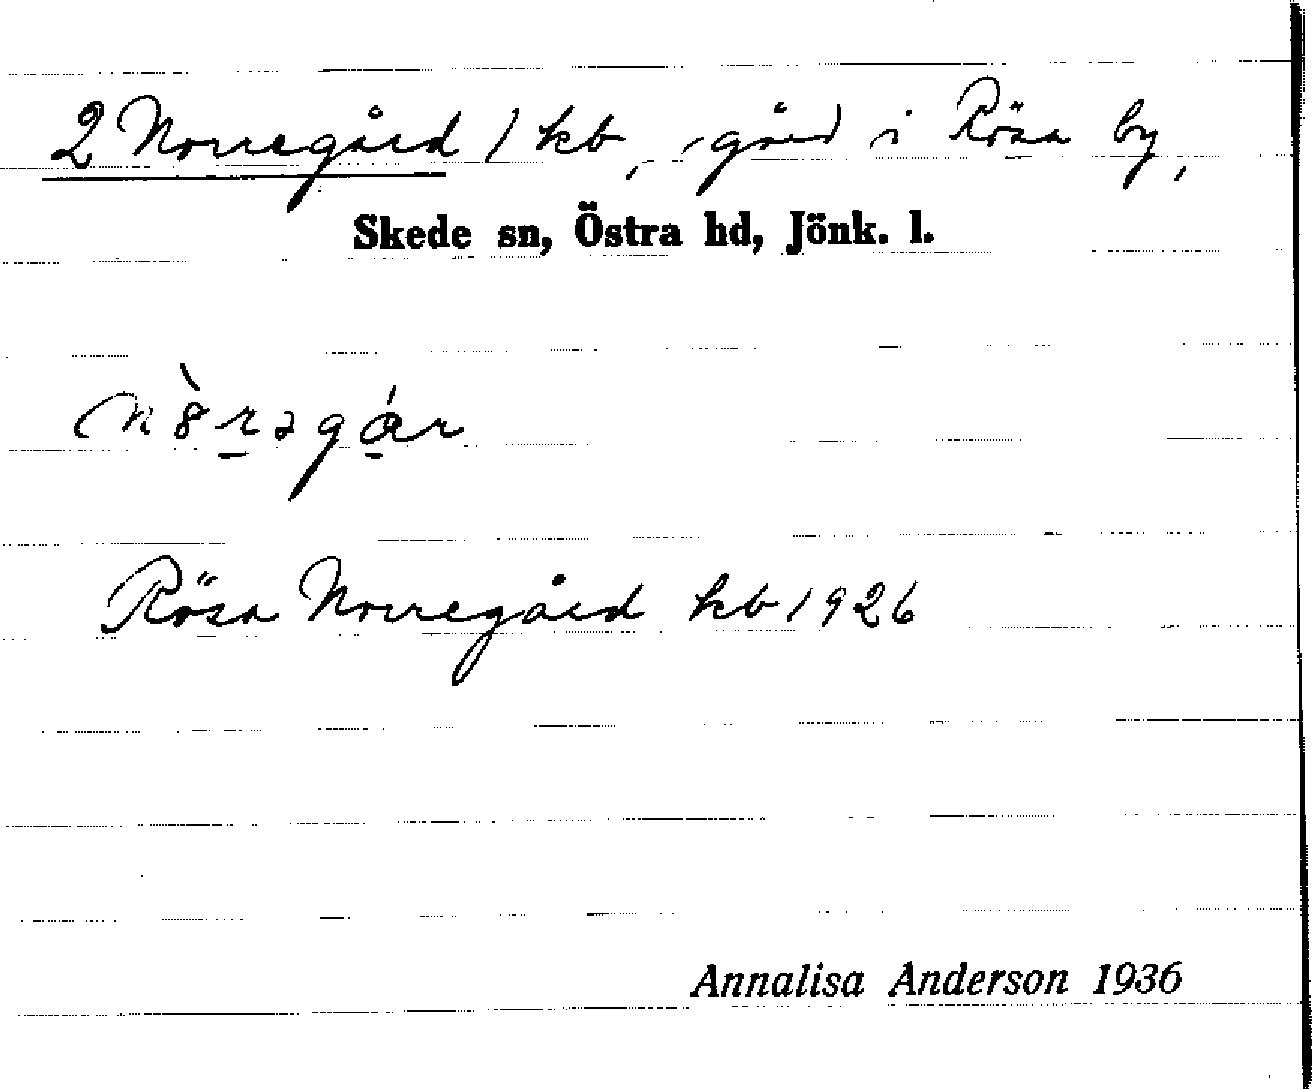 2 Norregård / kb, gård i Rösa by,
Skede sn, Östra hd, Jönk. l.
Rösa Norregård kb 1926
Annalisa Anderson 1936